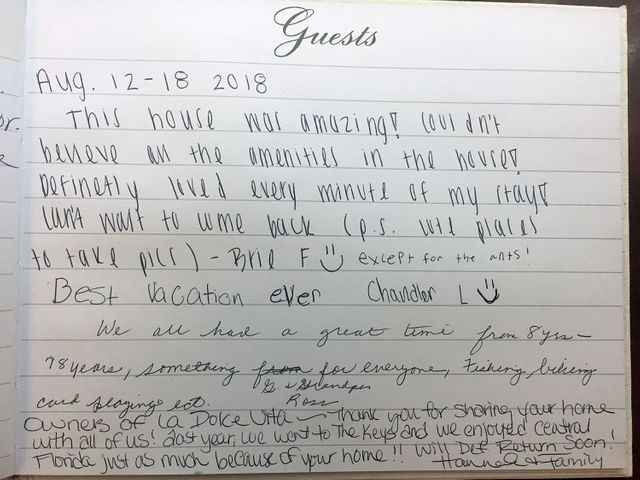 Guests
Aug. 12-18 2018
This house was amazing! Couldn't
believe all the amenities in the house!
Definetly loved every minute of my stay!
Can't wait to come back (p.s. cute places
to take pics) - Brie F ☺ except for the ants!
Best vacation ever Chandler L ☺
We all had a great time from 8yrs-
78years, something for everyone, Fishing, biking
card playing, ect.
G. & Grandpa
Ross
Owners of La Dolce Vita - Thank you for sharing your home
with all of us! Last year, we went to The Keys and we enjoyed central
Florida just as much because of your home!! Will Def Return Soon!
Hannah & Family